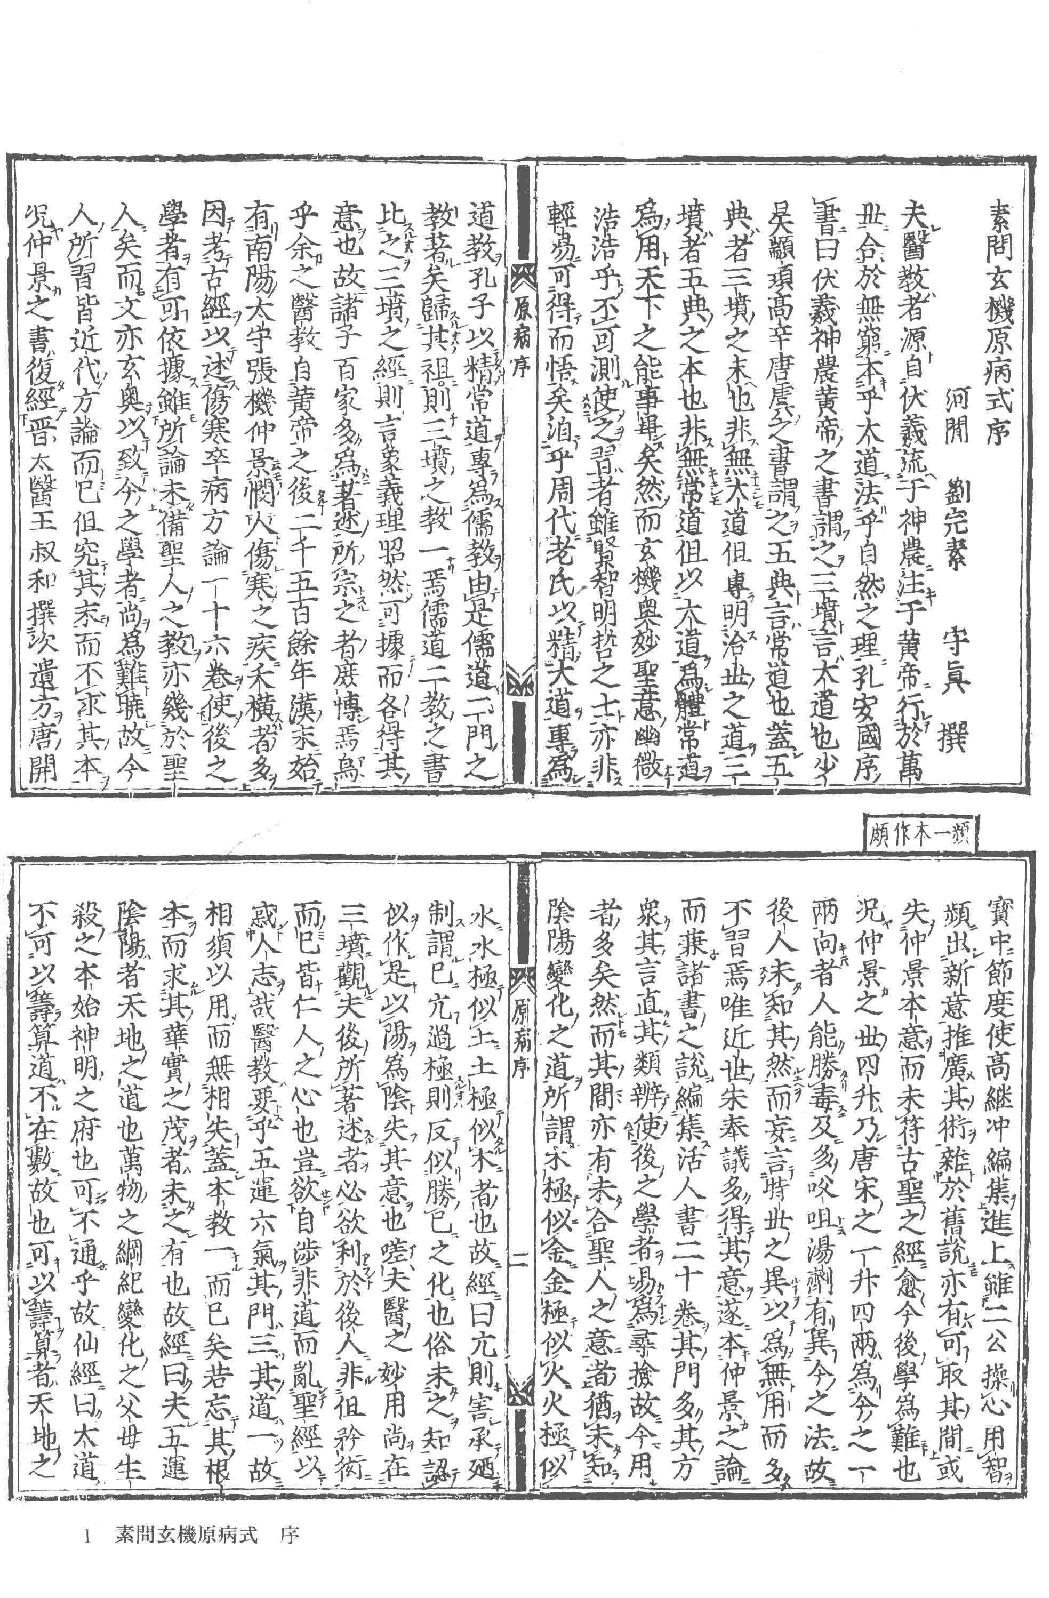 素問玄機原病式序
河間 劉完素 守眞 撰
夫醫教者源自伏羲流于神農注于黃帝行於萬
世合於無窮本乎大道法乎自然之理孔安國序
書曰伏羲神農黃帝之書謂之三墳言大道也少
昊顓頊高辛唐虞之書謂之五典言常道也蓋五
典者三墳之末也非無大道但專明治世之道三
墳者五典之本也非無常道但以大道爲體常道
爲用天下之能事畢矣然而玄機奧妙聖意幽微
浩浩乎不可測使之習者雖賢智明哲之士亦非
輕易可得而悟矣洎乎周代老氏以精大道專爲
道教孔子以精常道專爲儒教由是儒道二門之
教著矣歸其祖則三墳之教一焉儒道二教之書
比之三墳之經則言象義理昭然可據而各得其
意也故諸子百家多爲著述所宗之者庶博焉嗚
乎余之醫教自黃帝之後二千五百餘年漢末始
有南陽太守張機仲景憫人傷寒之疾夭橫者多
因考古經以述傷寒卒病方論一十六卷使後之
學者有可依據雖所論未備聖人之教亦幾於聖
人矣而文亦玄奧以致今之學者尚爲難曉故今
人所習皆近代方論而已但究其末而不求其本
况仲景之書復經晉太醫王叔和撰次遺方唐開
原病序
類一本作頗
寶中節度使高繼冲編集進上雖二公操心用智
頻出新意推廣其術雜於舊說亦有可取其間或
失仲景本意而未符古聖之經愈令後學爲難也
况仲景之世四升乃唐宋之一升四兩爲今之一
兩向者人能勝毒及多㕮咀湯劑有異今之法故
後人未知其然而妄言時世之異以爲無用而多
不習焉唯近世朱奉議多得其意遂本仲景之論
而兼諸書之說編集活人書二十卷其門多其方
衆其言直其類辨使後之學者易爲尋撿故今用
者多矣然而其間亦有未合聖人之意者猶未知
陰陽變化之道所謂木極似金金極似火火極似
水水極似土土極似木者也故經曰亢則害承廼
制謂已亢過極則反似勝已之化也俗未之知認
似作是以陽爲陰失其意也嗟夫醫之妙用尚在
三墳觀夫後所著述者必欲利於後人非但矜衒
而已皆仁人之心也豈欲自涉非道而亂聖經以
惑人志哉醫教要乎五運六氣其門三其道一故
相須以用而無相失蓋本教一而已矣若忘其根
本而求其華實之茂者未之有也故經曰夫五運
陰陽者天地之道也萬物之綱紀變化之父母生
殺之本始神明之府也可不通乎故仙經曰大道
不可以籌算道不在數故也可以籌算者天地之
原病序
二
1 素問玄機原病式 序